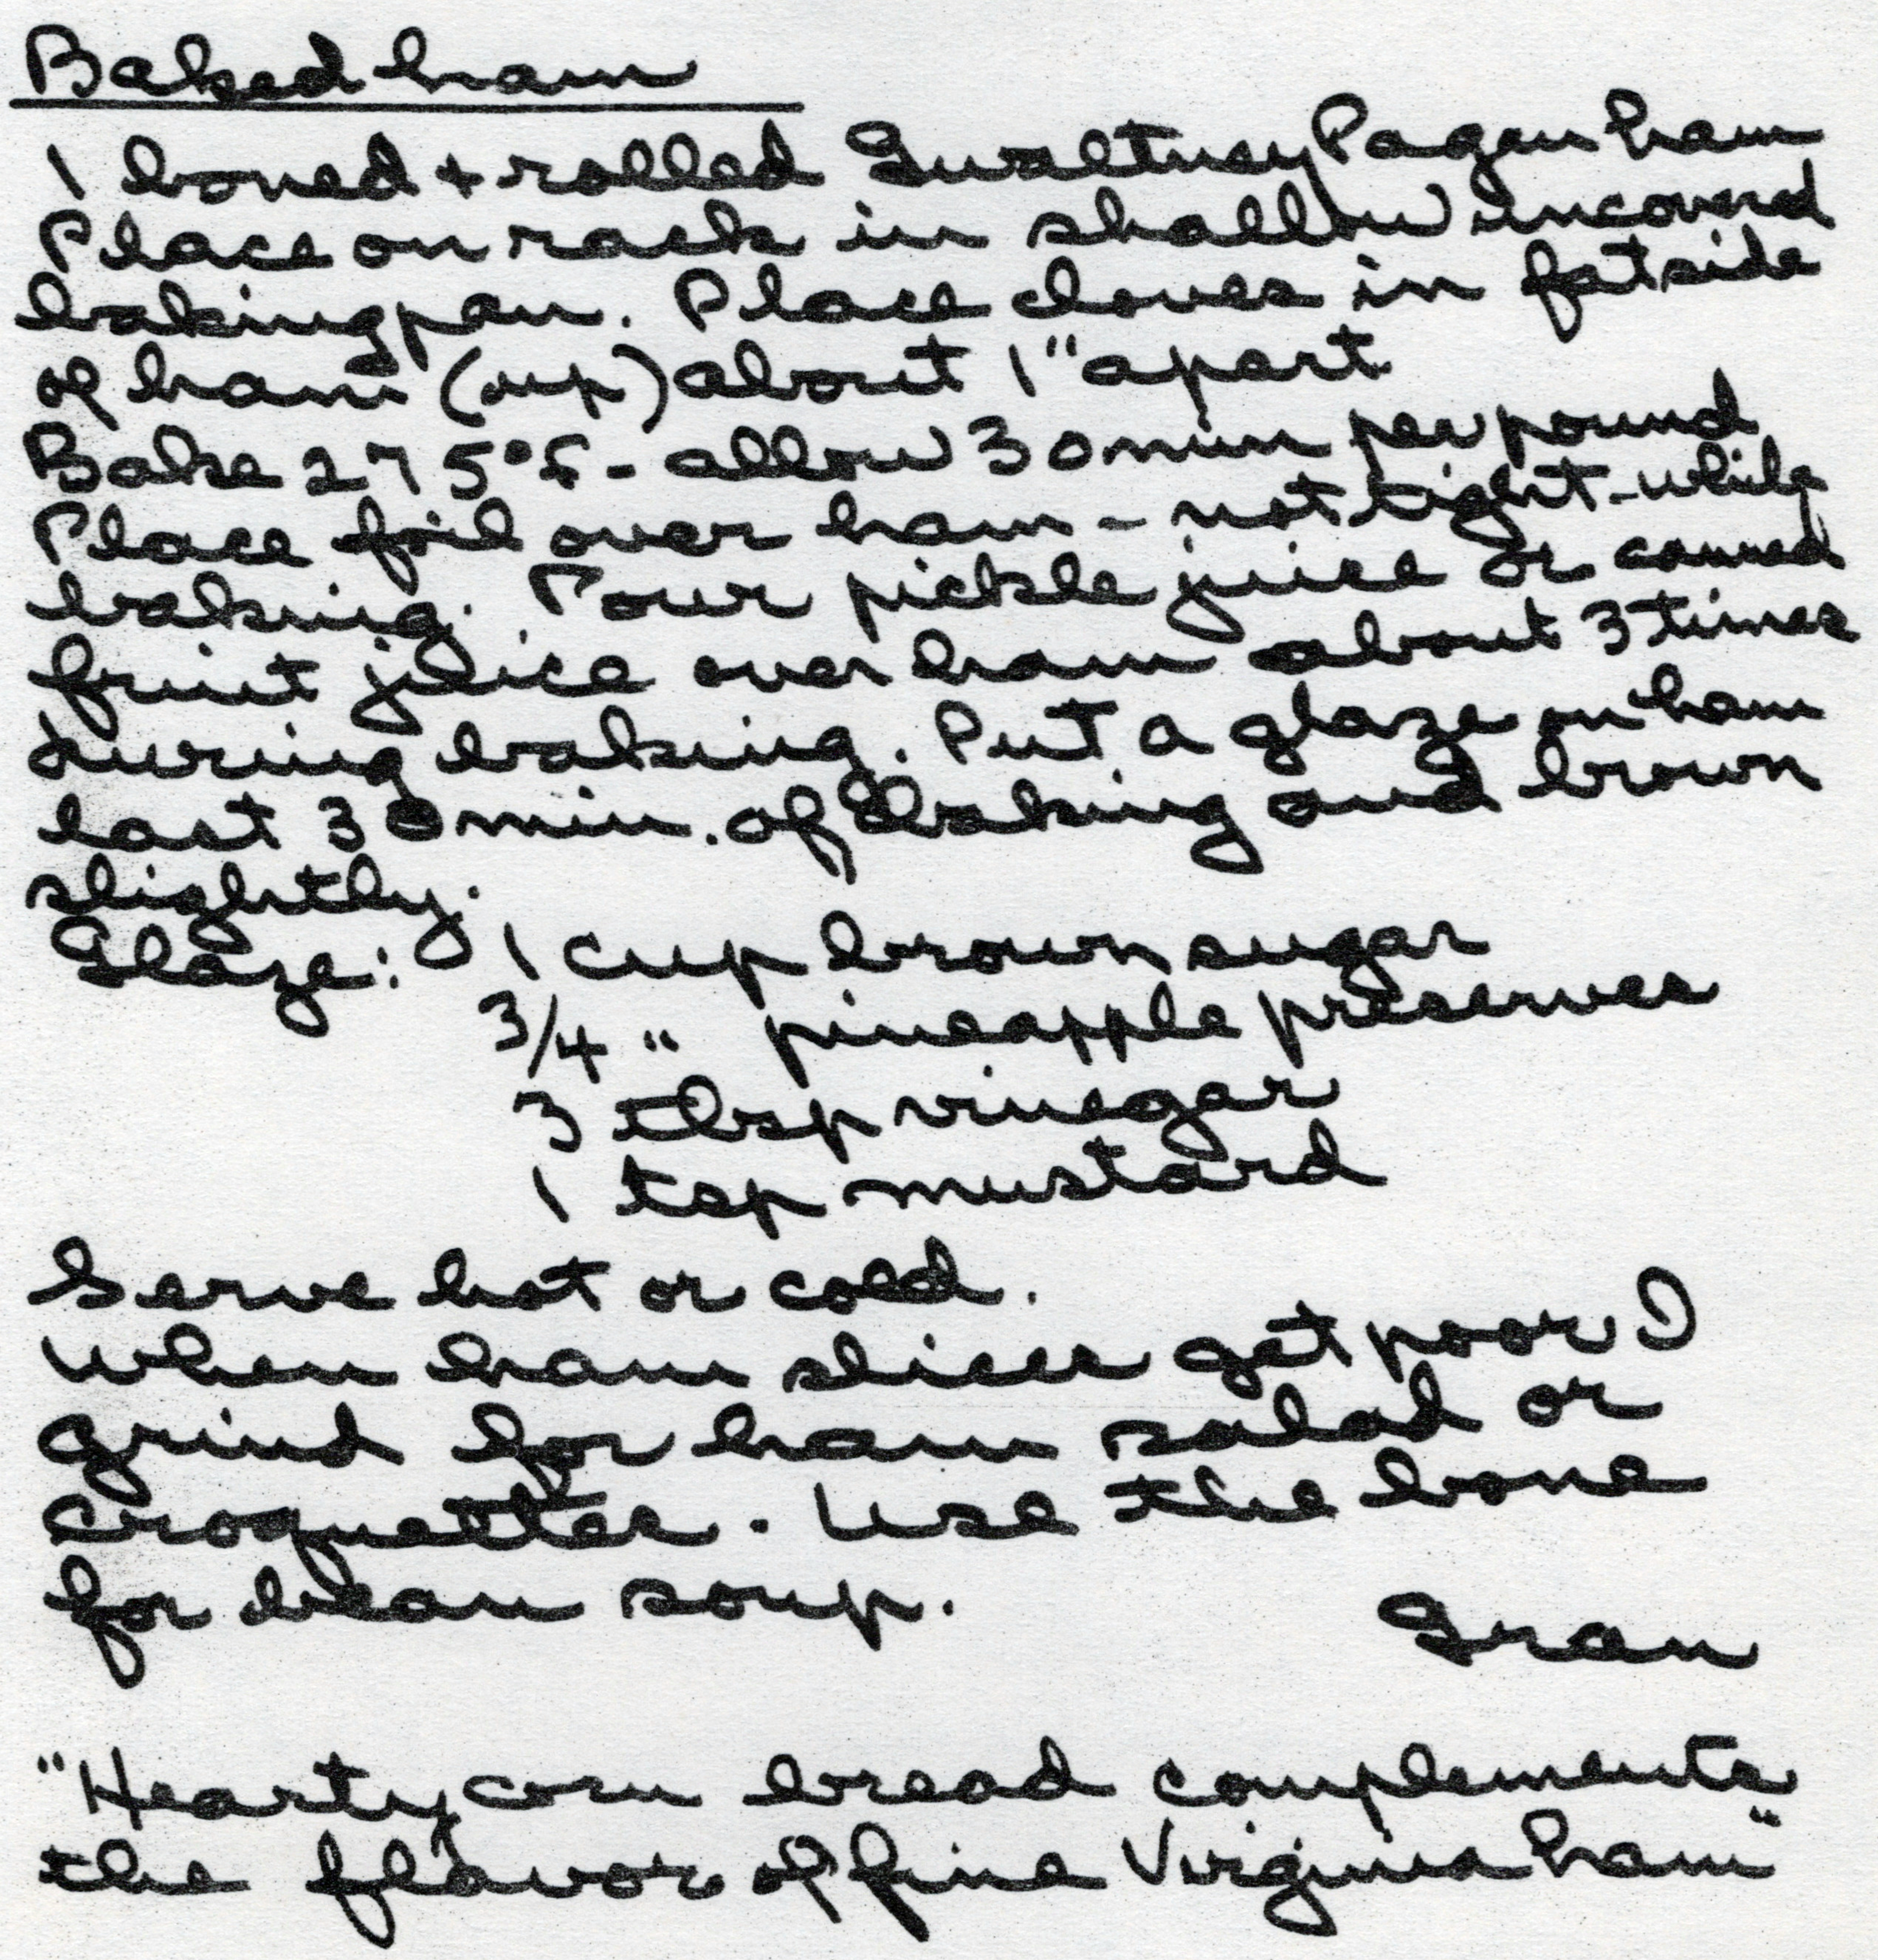 Baked ham
1 boned + rolled Gwaltney Pagan ham
Place on rack in shallow uncovered
baking pan. Place cloves in fat side
of ham (up) about 1" apart
Bake 275°F - allow 30 min per pound
Place foil over ham - not tight - while
baking. Pour pickle juice or canned
fruit juice over ham about 3 times
during baking. Put a glaze on ham
last 30 min. of baking and brown
slightly.
Glaze: 1 cup brown sugar
3/4 " pineapple preserves
3 tbsp vinegar
1 tsp mustard
Serve hot or cold.
When ham slices get poor I
grind for ham salad or
croquettes. Use the bone
for bean soup.
Gran
"Hearty corn bread complements
the flavor of fine Virginia ham"